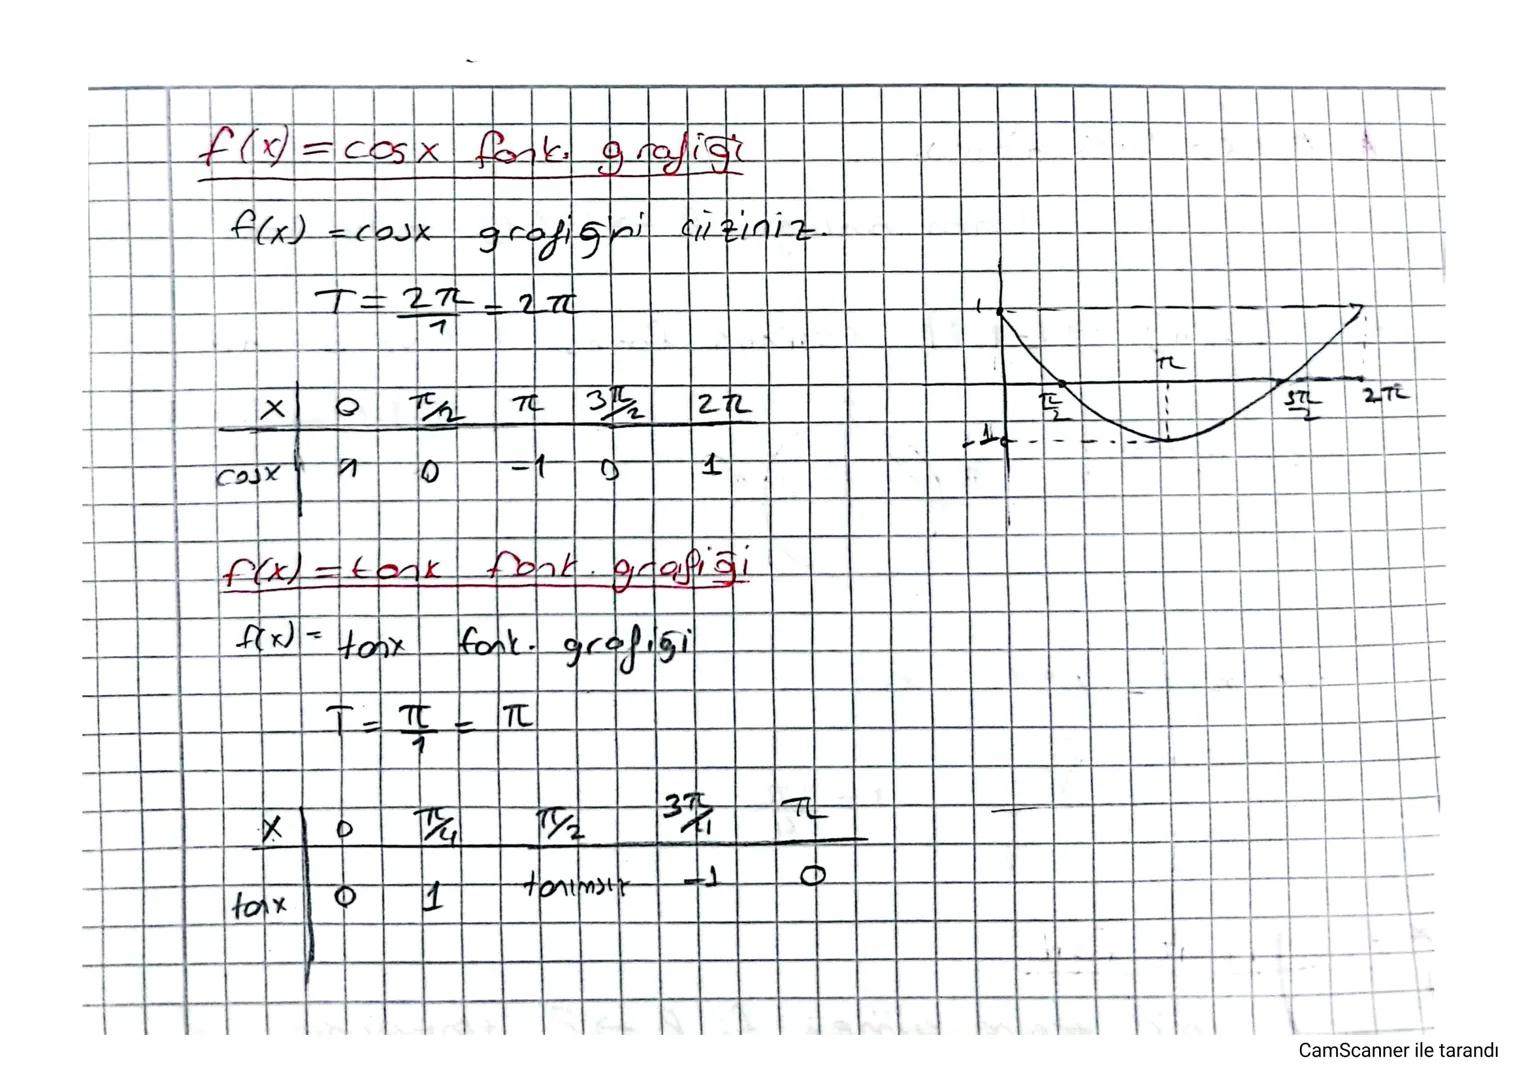 f(x) = cosx fonk. grafiği
f(x) = cosx grafiğni çiziniz.
T = 2π/1 = 2π
x 0 π/2 π 3π/2 2π
cosx 1 0 -1 0 1
1
π
π/2 3π/2 2π
-1
f(x) = tanx fonk. grafiği
f(x) = tanx fonk. grafiği
T = π/1 = π
x 0 π/4 π/2 3π/4 π
tanx 0 1 tanımsız -1 0
CamScanner ile tarandı